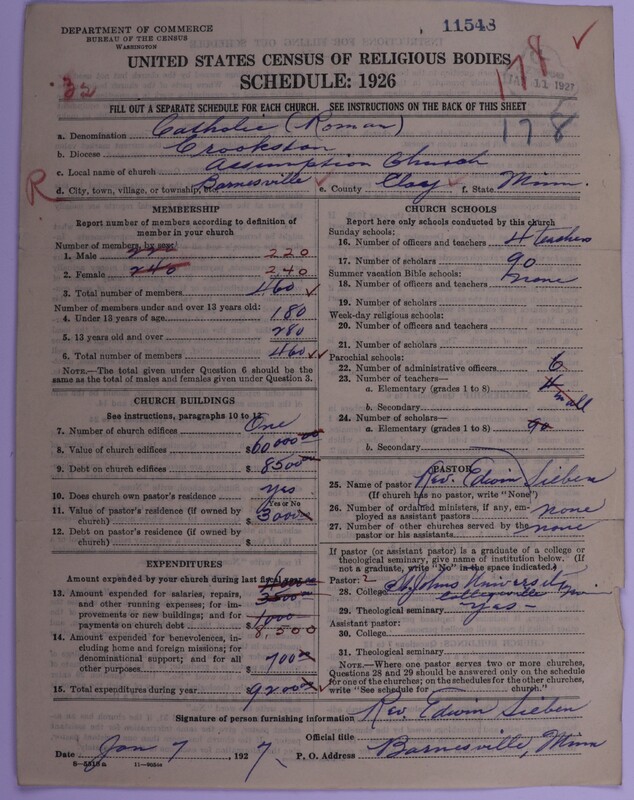 DEPARTMENT OF COMMERCE
BUREAU OF THE CENSUS
WASHINGTON
11548
UNITED STATES CENSUS OF RELIGIOUS BODIES
SCHEDULE: 1926
32
178
1927
FILL OUT A SEPARATE SCHEDULE FOR EACH CHURCH. SEE INSTRUCTIONS ON THE BACK OF THIS SHEET
178
a. Denomination Catholic (Roman)
b. Diocese Crookston
c. Local name of church Assumption Church
R d. City, town, village, or township, etc. Barnesville e. County Clay f. State Minn.
MEMBERSHIP
Report number of members according to definition of member in your church
Number of members, by sex:
1. Male 220 220
2. Female 240 240
3. Total number of members 460
Number of members under and over 13 years old:
4. Under 13 years of age 180
5. 13 years old and over 280
6. Total number of members 460
NOTE.—The total given under Question 6 should be the same as the total of males and females given under Question 3.
CHURCH BUILDINGS
See instructions, paragraphs 10 to 12
7. Number of church edifices One
8. Value of church edifices $60000 00
9. Debt on church edifices $8500 00
10. Does church own pastor's residence yes
Yes or No
11. Value of pastor's residence (if owned by church) $3000
12. Debt on pastor's residence (if owned by church) $
EXPENDITURES
Amount expended by your church during last fiscal year
13. Amount expended for salaries, repairs, and other running expenses; for improvements or new buildings; and for payments on church debt
8,500
14. Amount expended for benevolences, including home and foreign missions; for denominational support; and for all other purposes $700 00
15. Total expenditures during year $9200 00
CHURCH SCHOOLS
Report here only schools conducted by this church
Sunday schools:
16. Number of officers and teachers 4 teachers
17. Number of scholars 90
Summer vacation Bible schools:
18. Number of officers and teachers none
19. Number of scholars
Week-day religious schools:
20. Number of officers and teachers
21. Number of scholars
Parochial schools:
22. Number of administrative officers 6
23. Number of teachers—
a. Elementary (grades 1 to 8) 4
in all
b. Secondary
24. Number of scholars—
a. Elementary (grades 1 to 8) 90
b. Secondary
PASTOR
25. Name of pastor Rev. Edwin Sieben
(If church has no pastor, write "None")
26. Number of ordained ministers, if any, employed as assistant pastors none
27. Number of other churches served by the pastor or his assistants none
If pastor (or assistant pastor) is a graduate of a college or theological seminary, give name of institution below. (If not a graduate, write "No" in the space indicated.)
Pastor: 2
28. College St. Johns University
Collegeville Minn
29. Theological seminary yes
Assistant pastor:
30. College
31. Theological seminary
NOTE.—Where one pastor serves two or more churches, Questions 28 and 29 should be answered only on the schedule for one of the churches; on the schedules for the other churches, write "See schedule for church."
Signature of person furnishing information Rev. Edwin Sieben
Official title
Date Jan 7, 1927. P. O. Address Barnesville, Minn